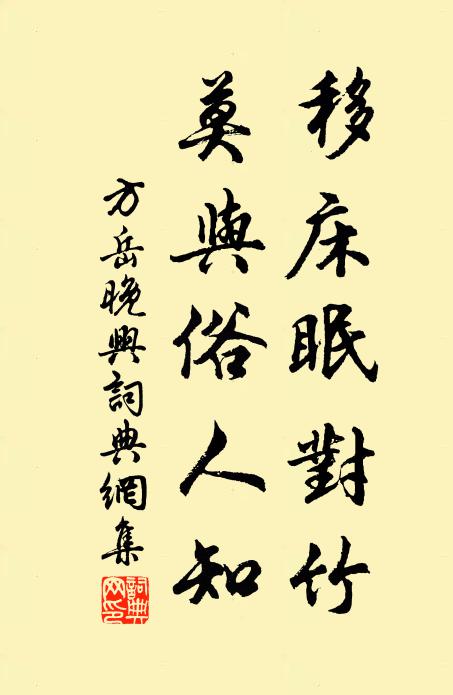 移床眠對竹
莫與俗人知
方岳晚興詞典網集
詞典网印